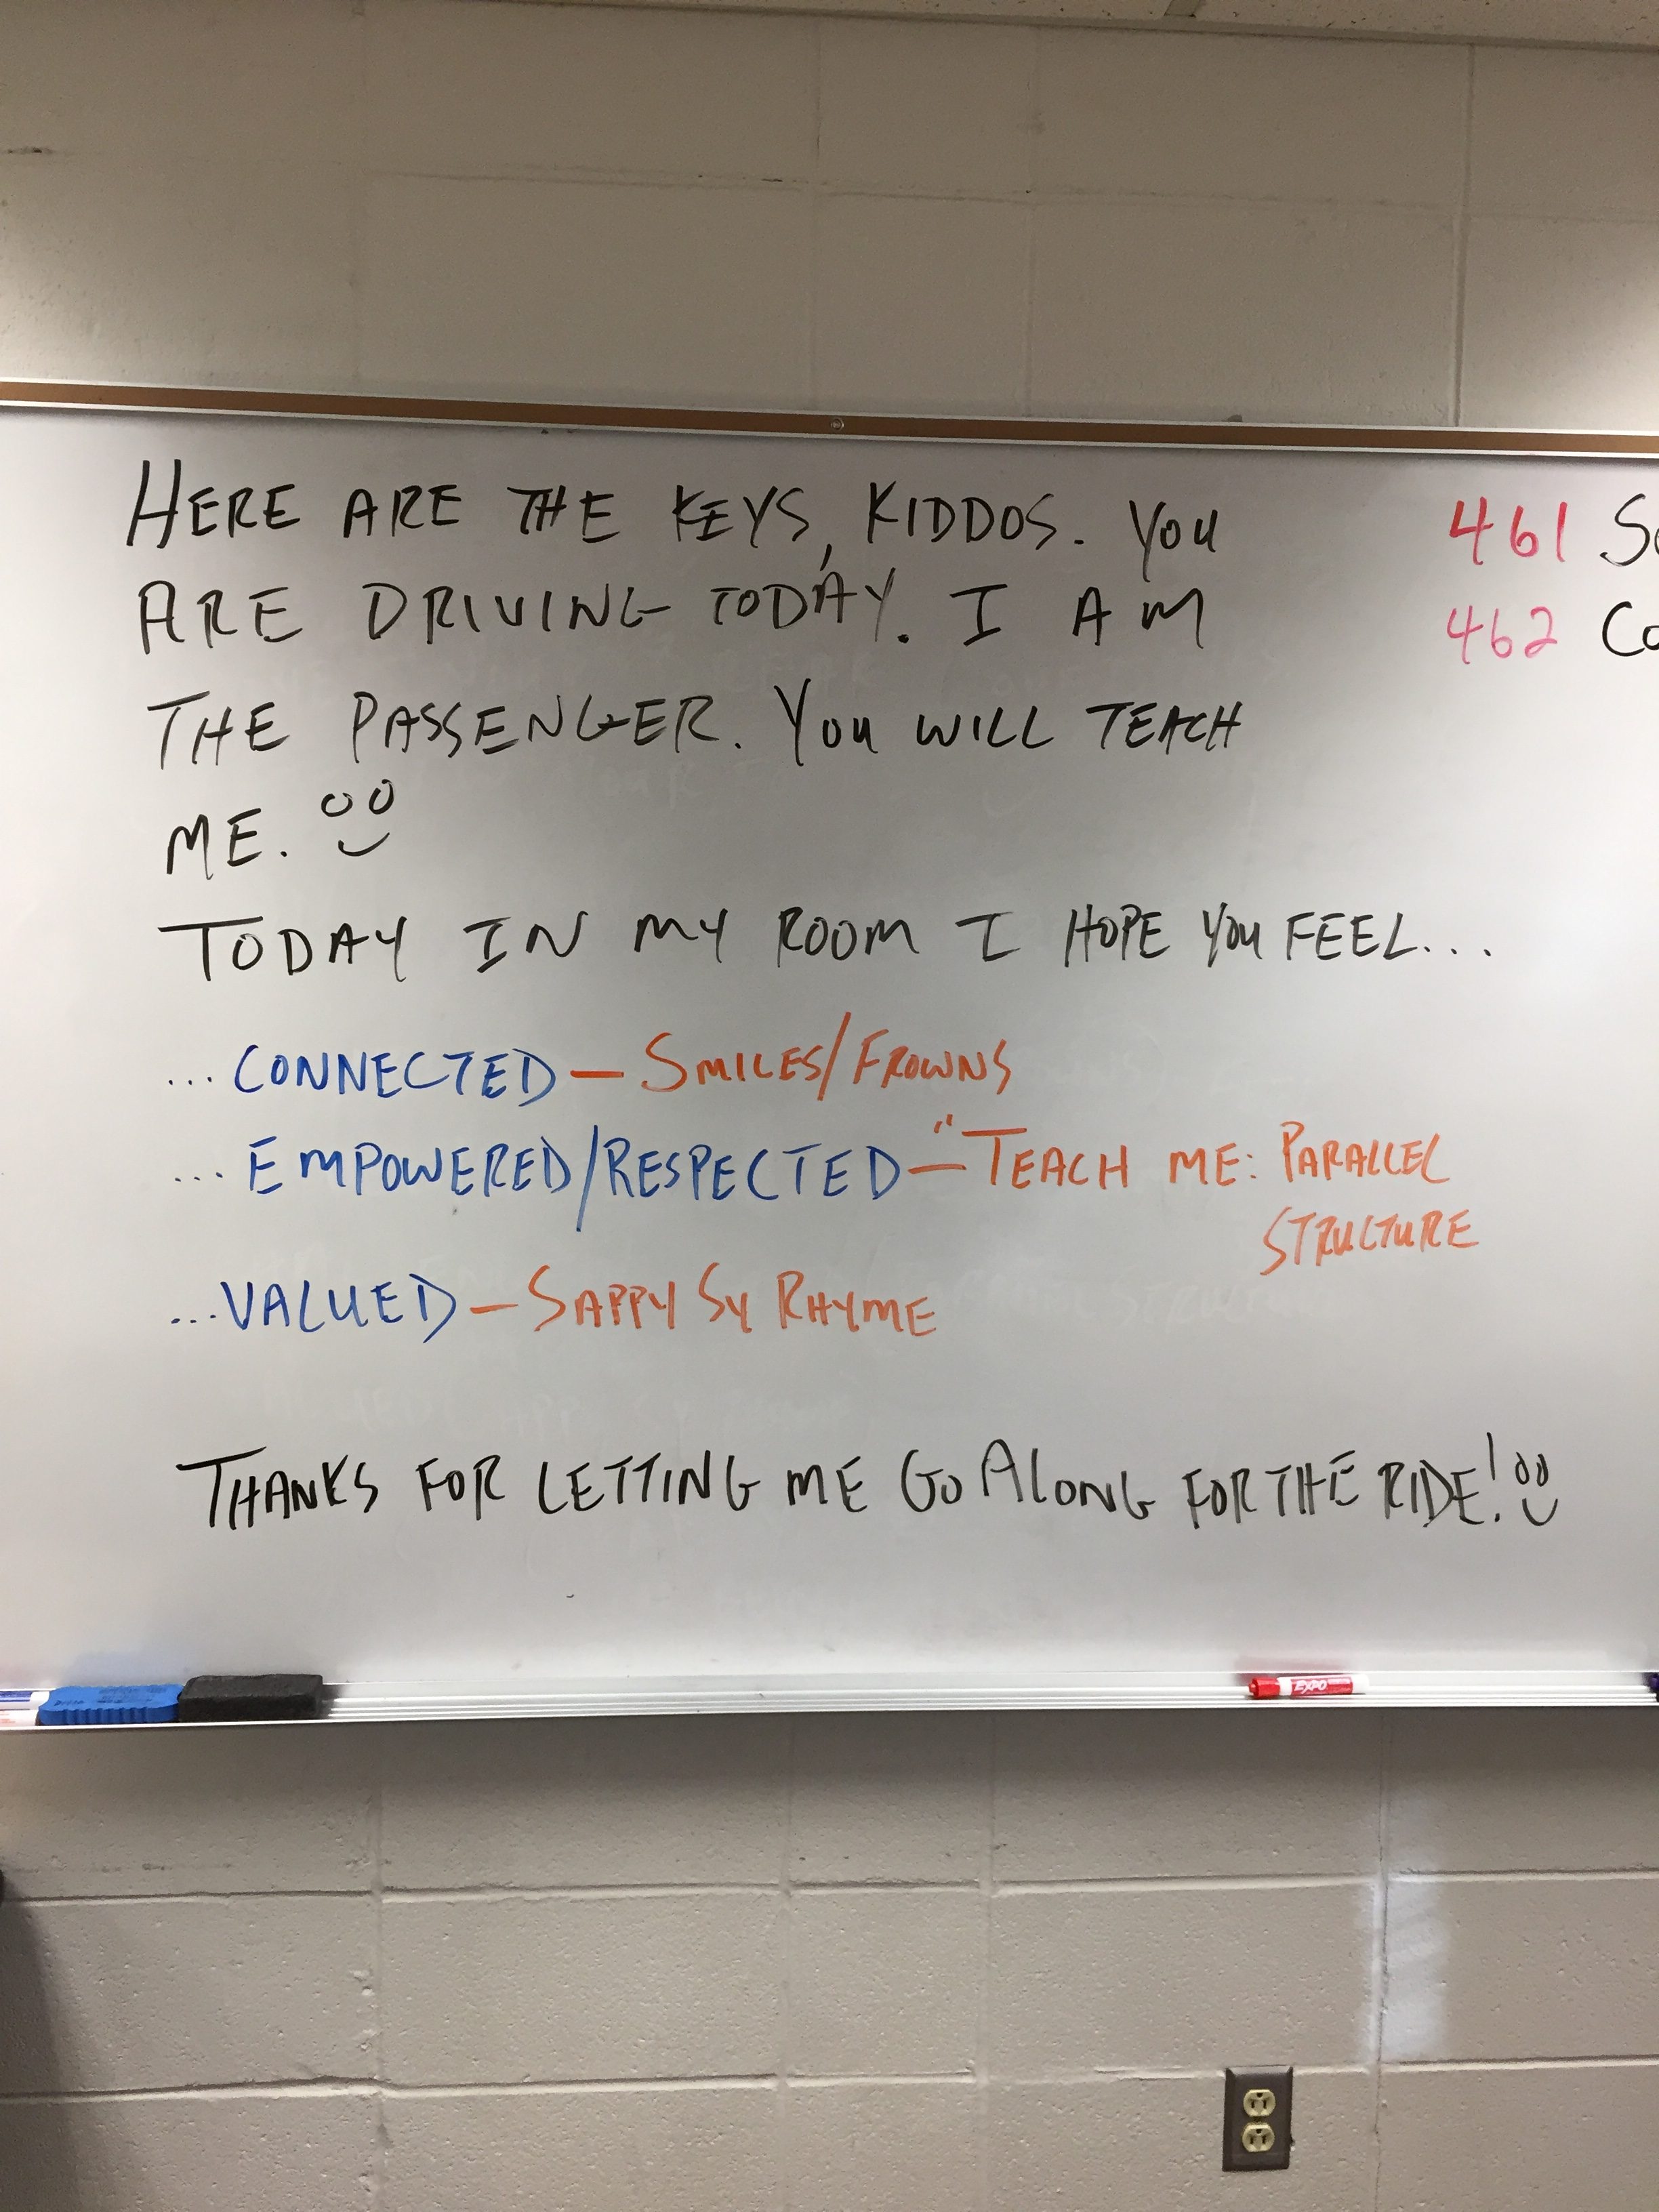 HERE ARE THE KEYS, KIDDOS. YOU
ARE DRIVING TODAY. I AM
THE PASSENGER. YOU WILL TEACH
ME.
TODAY IN MY ROOM I HOPE YOU FEEL...
...CONNECTED — SMILES/FROWNS
...EMPOWERED/RESPECTED — "TEACH ME: PARALLEL
STRUCTURE
...VALUED — SAPPY SY RHYME
THANKS FOR LETTING ME GO ALONG FOR THE RIDE!
461 So
462 Co
EXPO